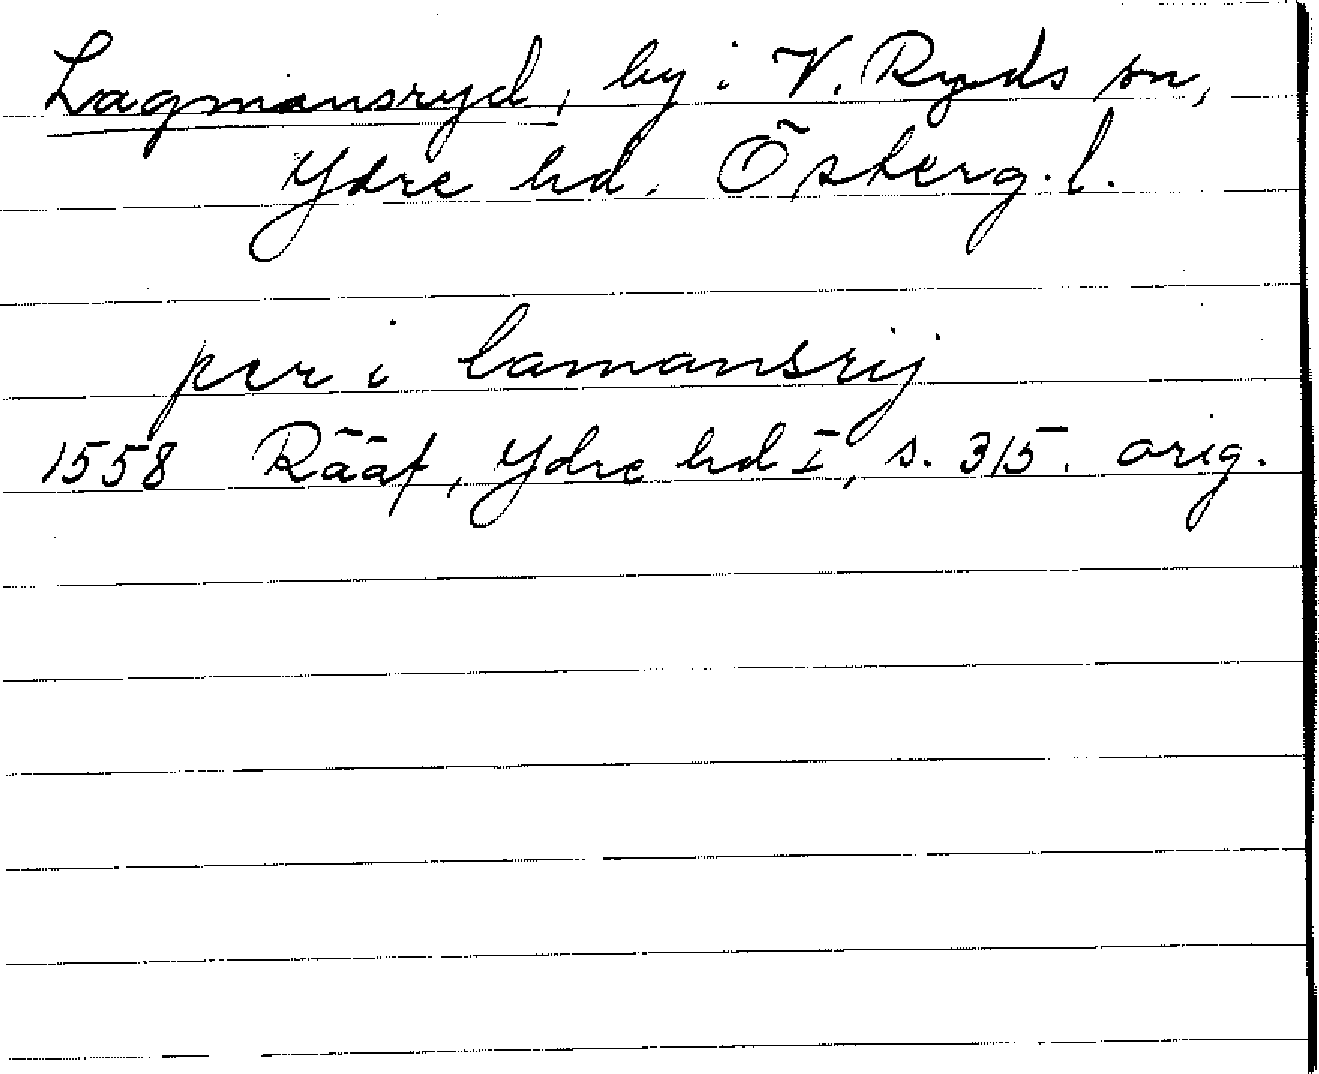 Lagmansryd, by i V. Ryds sn,
Ydre hd. Österg. l.
per i lamansrij
1558 Rääf, Ydre hd I, s. 315. orig.